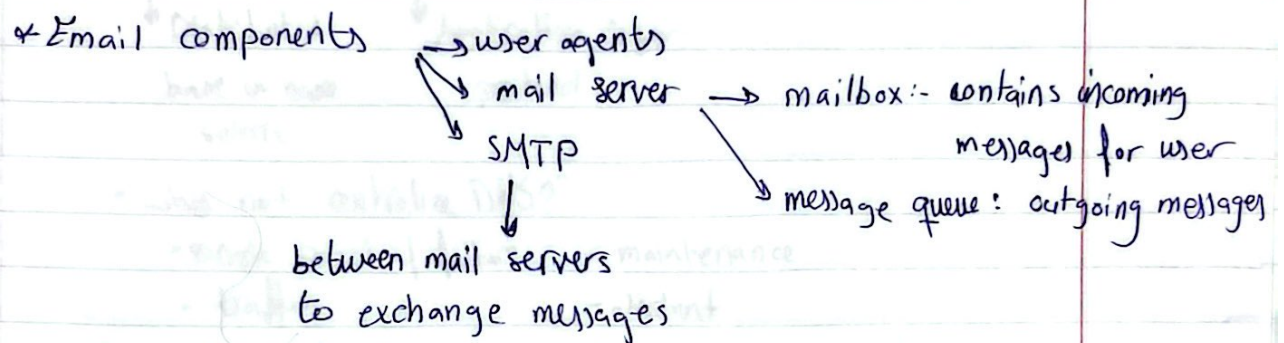 * Email components → user agents
→ mail server → mailbox:- contains incoming
messages for user
→ SMTP
→ message queue: outgoing messages
↓
between mail servers
to exchange messages